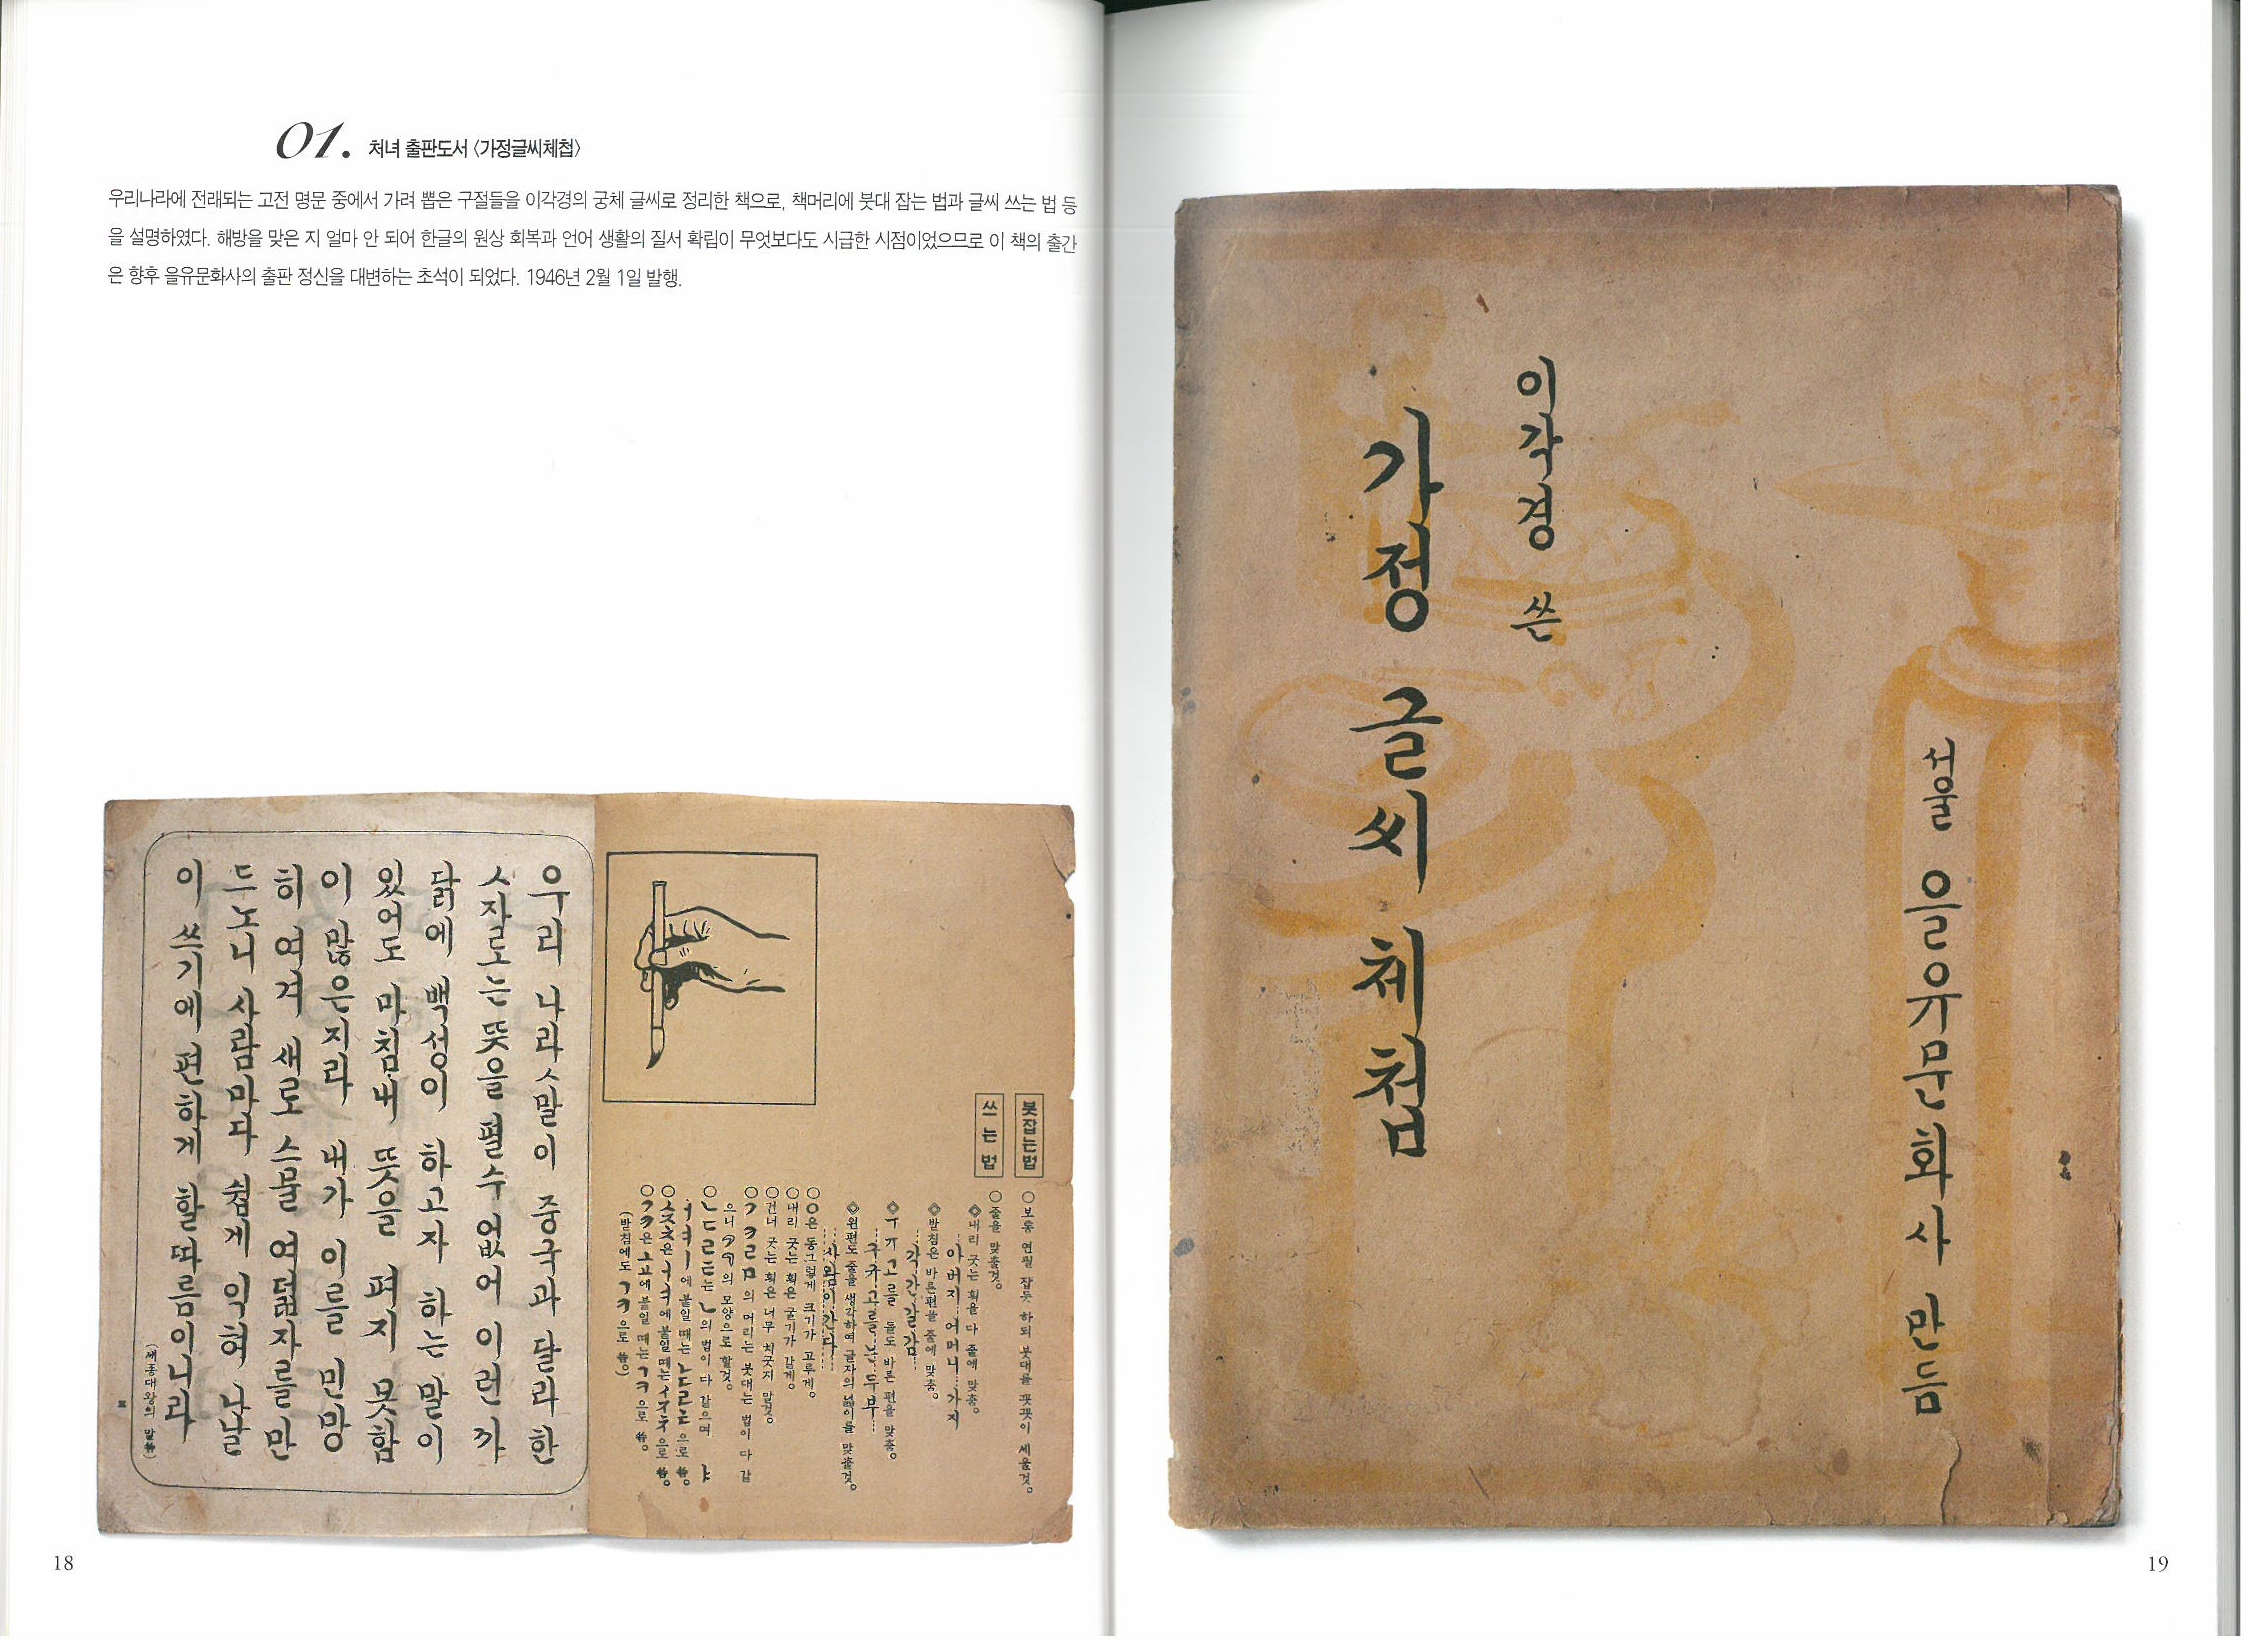 01. 처녀 출판도서 〈가정글씨체첩〉
우리나라에 전래되는 고전 명문 중에서 가려 뽑은 구절들을 이각경의 궁체 글씨로 정리한 책으로, 책머리에 붓대 잡는 법과 글씨 쓰는 법 등
을 설명하였다. 해방을 맞은 지 얼마 안 되어 한글의 원상 회복과 언어 생활의 질서 확립이 무엇보다도 시급한 시점이었으므로 이 책의 출간
은 향후 을유문화사의 출판 정신을 대변하는 초석이 되었다. 1946년 2월 1일 발행.
붓잡는법
○보통 연필 잡듯 하되 붓대를 꼿꼿이 세울것。
쓰는법
○줄을 맞출것。
◇내리 긋는 획을 다 줄에 맞춤。
아버지 어머니 가지
◇받침은 바른편을 줄에 맞춤。
각 간 갈 감
◇ㅜㅠㄱ고를 들도 바른 편을 맞춤。
구규고를는두부
◇왼편도 줄을 생각하여 글자의 넓이를 맞출것。
사람이 간다
○ㅇ은 동그랗게 크기가 고루게。
○내리 긋는 획은 굵기가 같게。
○건너 긋는 획은 너무 치긋지 말것。
○ㄱㅋㄹㅁ의 머리는 붓대는 법이 다 같
으니 ㄱㄱ의 모양으로 할것。
○ㄴㄷㄹㅌ는 ㄴ의 법이 다 같으며 ㅑ
ㅓㅕㅣ에 붙일 때는 ㄴㄷㄹㅌ으로 씀。
○ㅅㅈㅊ은 ㅓㅕ에 붙일때는 ㅅㅈㅊ으로 씀。
○ㄱㅋ은 ㅗㅛ에 붙일 때는 ㄱㅋ으로 씀。
(받침에도 ㄱㅋ으로 씀。)
우리 나라ㅅ말이 중국과 달라 한
ㅅ자로는 뜻을 펼수 없어 이런 까
닭에 백성이 하고자 하는 말이
있어도 마침내 뜻을 펴지 못함
이 많은지라 내가 이를 민망
히 여겨 새로 스물 여덟자를 만
드노니 사람마다 쉽게 익혀 나날
이 쓰기에 편하게 할 따름이니라
(세종대왕의 말씀)
18
서울 을유문화사 만듬
이각경 쓴
가정 글씨체첩
19